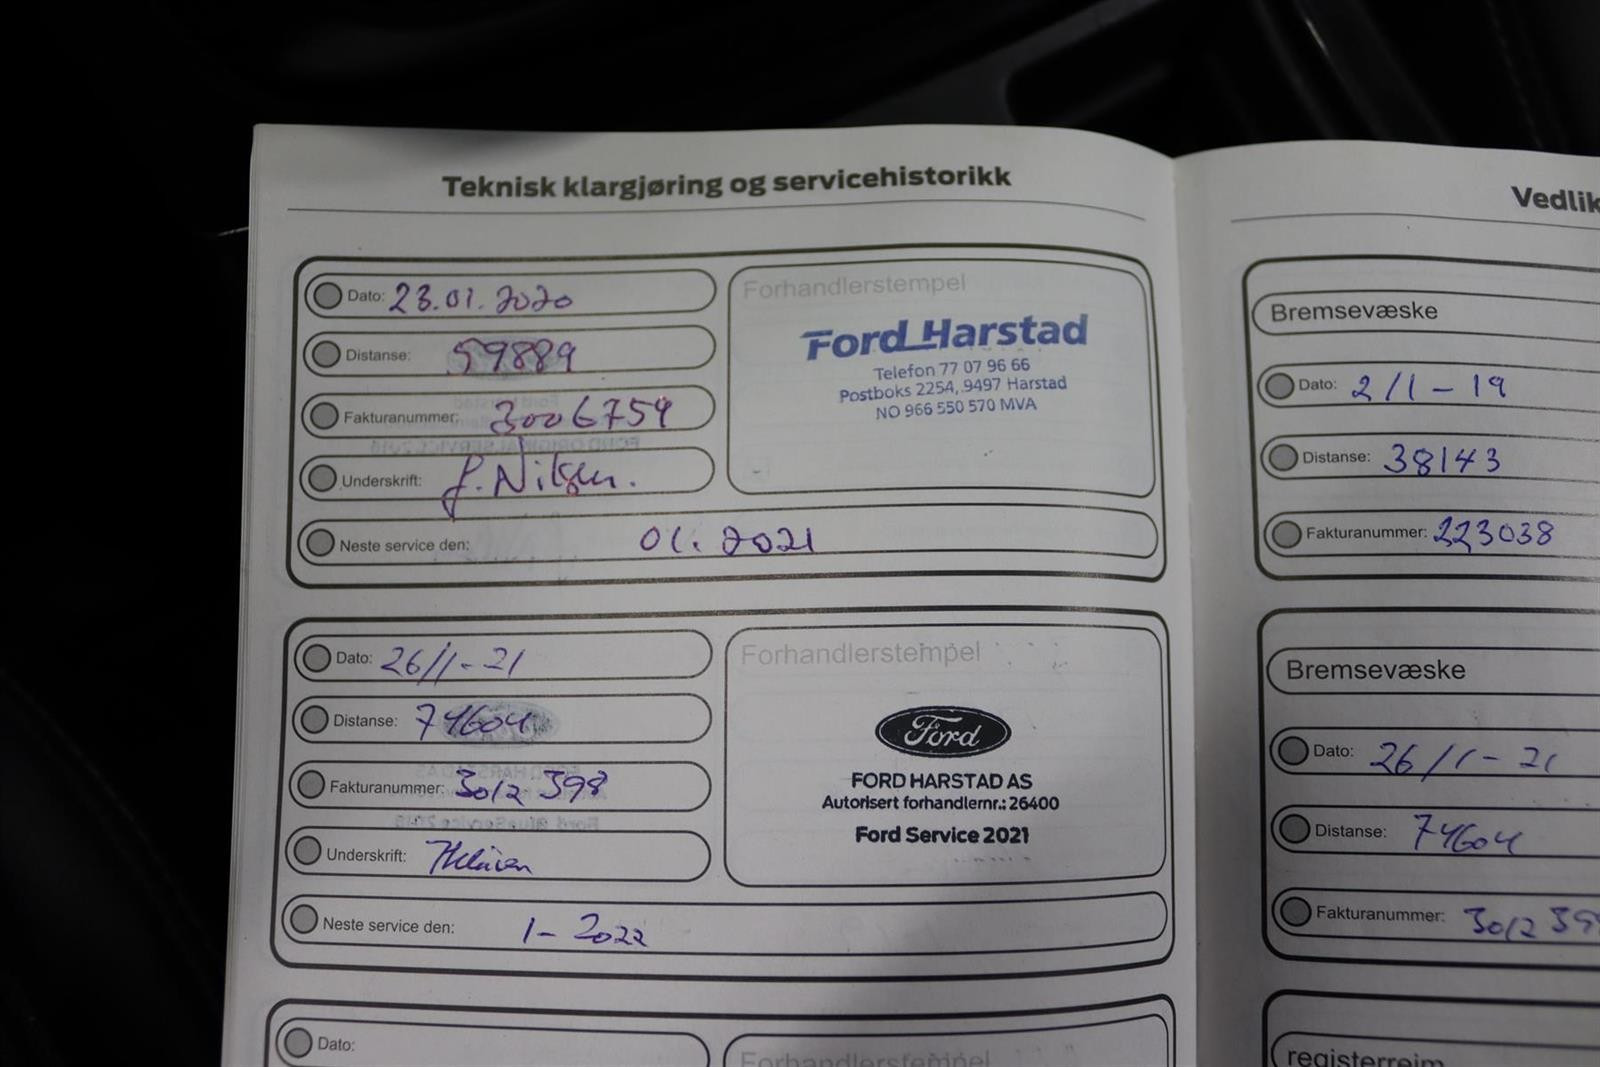 Teknisk klargjøring og servicehistorikk
Dato: 23.01.2020
Distanse: 59889
Fakturanummer: 3006759
Underskrift: J. Nilsen.
Neste service den: 01. 2021
Forhandlerstempel
Ford Harstad
Telefon 77 07 96 66
Postboks 2254, 9497 Harstad
NO 966 550 570 MVA
Dato: 26/1-21
Distanse: 74604
Fakturanummer: 3012398
Underskrift:
Neste service den: 1-2022
Forhandlerstempel
Ford
FORD HARSTAD AS
Autorisert forhandlernr.: 26400
Ford Service 2021
Dato:
Forhandlerstempel
Vedlik
Bremsevæske
Dato: 2/1-19
Distanse: 38143
Fakturanummer: 223038
Bremsevæske
Dato: 26/1-21
Distanse: 74604
Fakturanummer: 3012398
registerreim